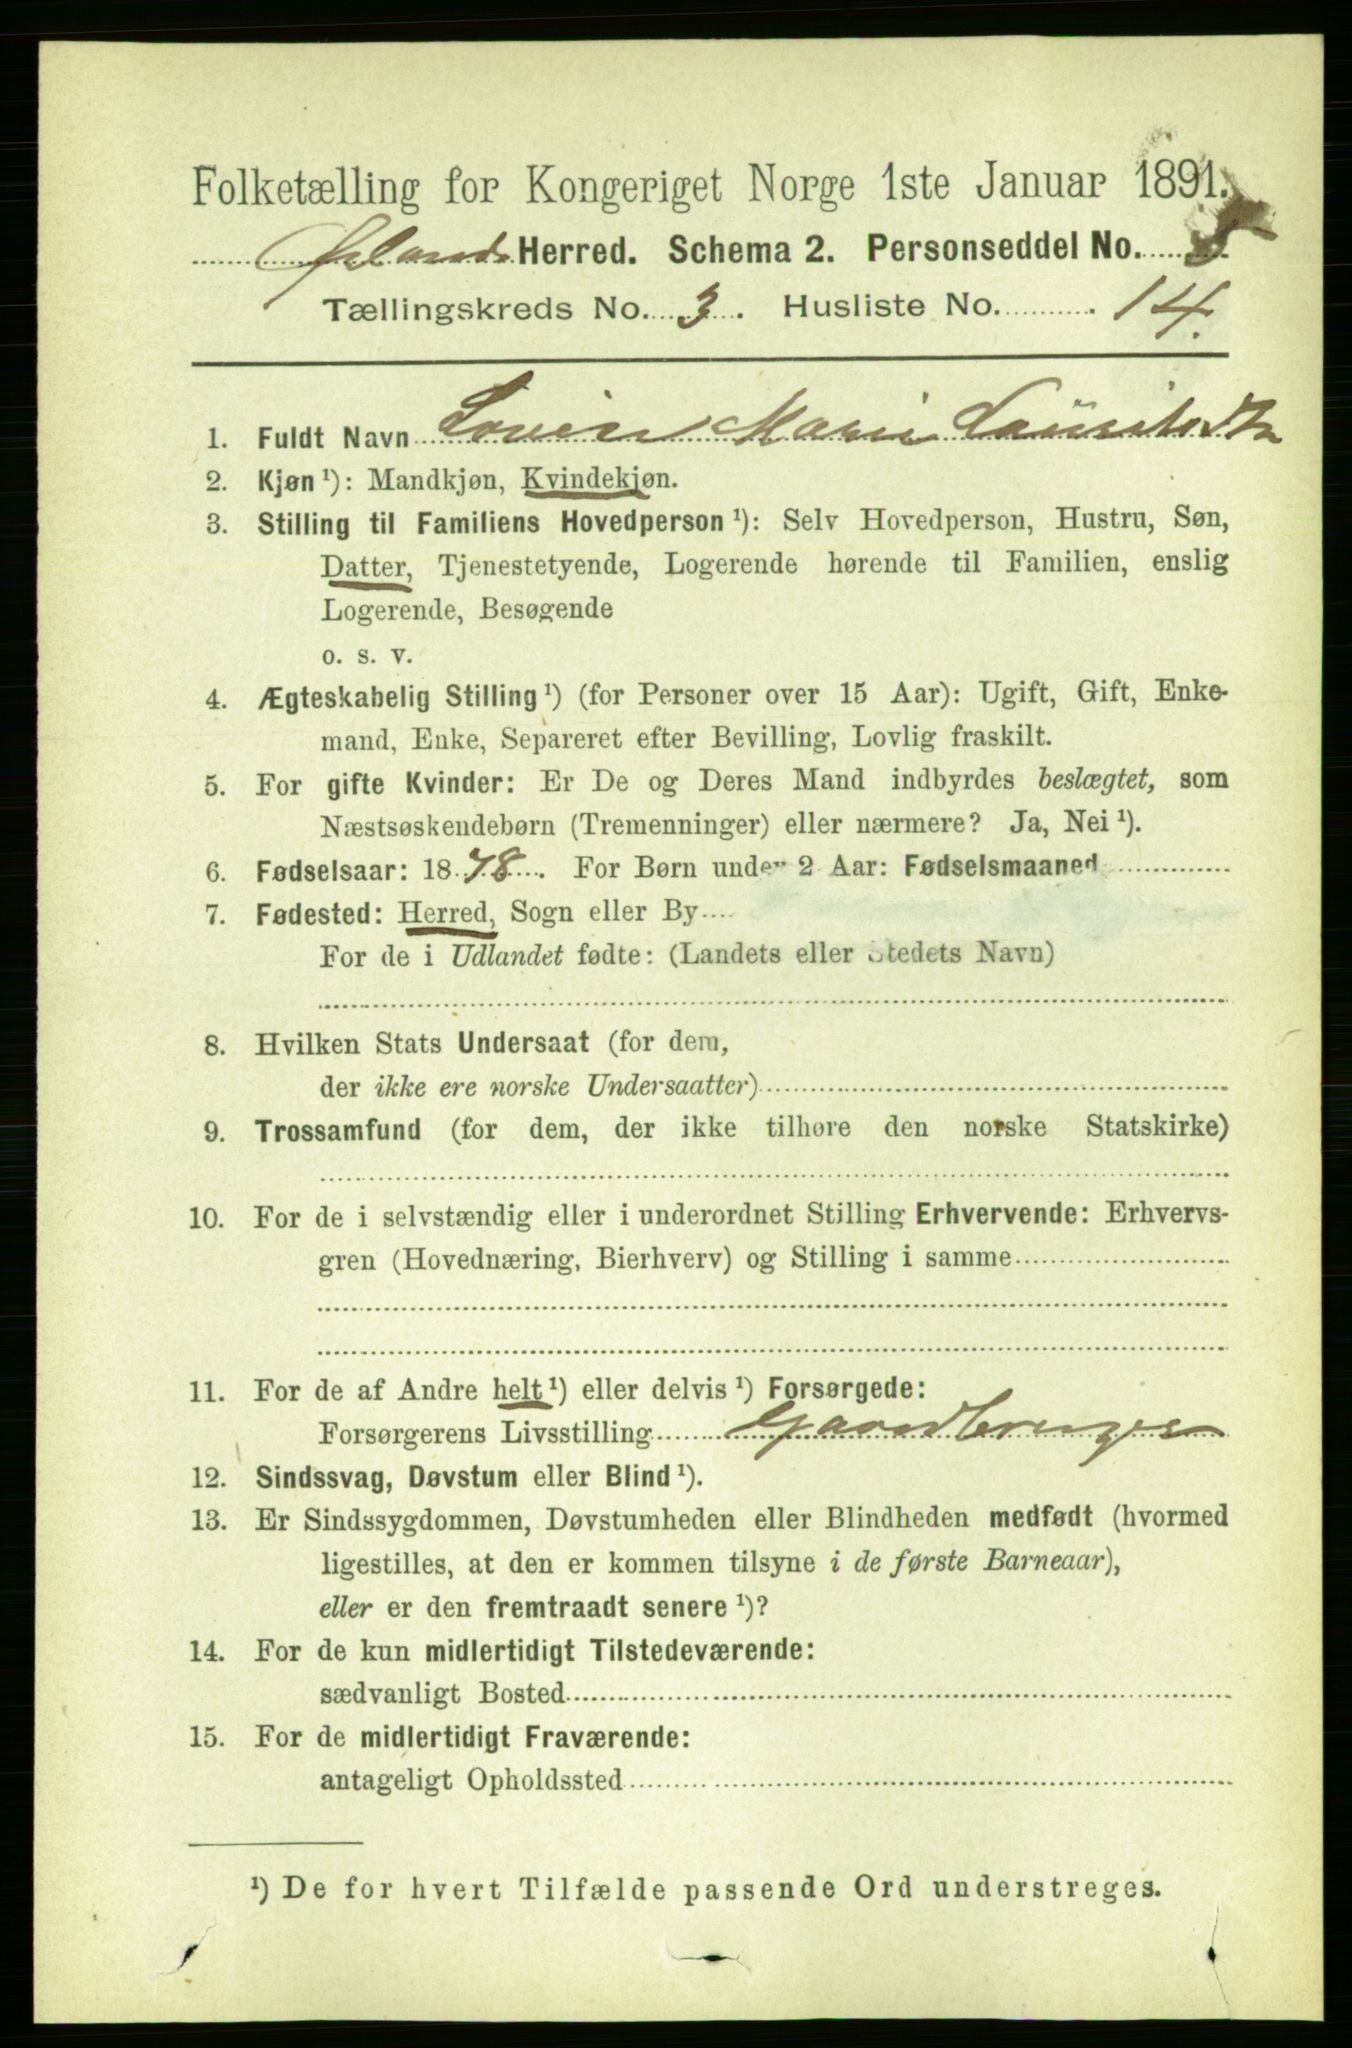 Folketælling for Kongeriget Norge 1ste Januar 1891.
Herred. Schema 2. Personseddel No. 5
Tællingskreds No. 3. Husliste No. 14.
1. Fuldt Navn Lovise Marie
2. Kjøn ¹): Mandkjøn, Kvindekjøn.
3. Stilling til Familiens Hovedperson ¹): Selv Hovedperson, Hustru, Søn,
Datter, Tjenestetyende, Logerende hørende til Familien, enslig
Logerende, Besøgende
o. s. v.
4. Ægteskabelig Stilling ¹) (for Personer over 15 Aar): Ugift, Gift, Enke-
mand, Enke, Separeret efter Bevilling, Lovlig fraskilt.
5. For gifte Kvinder: Er De og Deres Mand indbyrdes beslægtet, som
Næstsøskendebørn (Tremenninger) eller nærmere? Ja, Nei ¹).
6. Fødselsaar: 1878. For Børn under 2 Aar: Fødselsmaaned
7. Fødested: Herred, Sogn eller By
For de i Udlandet fødte: (Landets eller Stedets Navn)
8. Hvilken Stats Undersaat (for dem,
der ikke ere norske Undersaatter)
9. Trossamfund (for dem, der ikke tilhøre den norske Statskirke)
10. For de i selvstændig eller i underordnet Stilling Erhvervende: Erhvervs-
gren (Hovednæring, Bierhverv) og Stilling i samme
11. For de af Andre helt ¹) eller delvis ¹) Forsørgede:
Forsørgerens Livsstilling Gaardbruger
12. Sindssvag, Døvstum eller Blind ¹).
13. Er Sindssygdommen, Døvstumheden eller Blindheden medfødt (hvormed
ligestilles, at den er kommen tilsyne i de første Barneaar),
eller er den fremtraadt senere ¹)?
14. For de kun midlertidigt Tilstedeværende:
sædvanligt Bosted
15. For de midlertidigt Fraværende:
antageligt Opholdssted
¹) De for hvert Tilfælde passende Ord understreges.